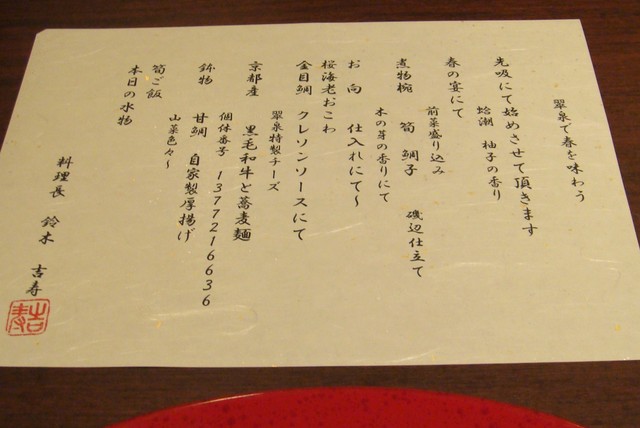 翠泉で春を味わう
先吸にて始めさせて頂きます
蛤潮 柚子の香り
春の宴にて
前菜盛り込み
煮物椀 筍 鯛子 磯辺仕立て
木の芽の香りにて
お向 仕入れにて～
桜海老おこわ
金目鯛 クレソンソースにて
翠泉特製チーズ
京都産 黒毛和牛と蕎麦麺
個体番号 1377216636
鉢物 甘鯛 自家製厚揚げ
山菜色々～
筍ご飯
本日の水物
料理長 鈴木 吉寿
吉寿